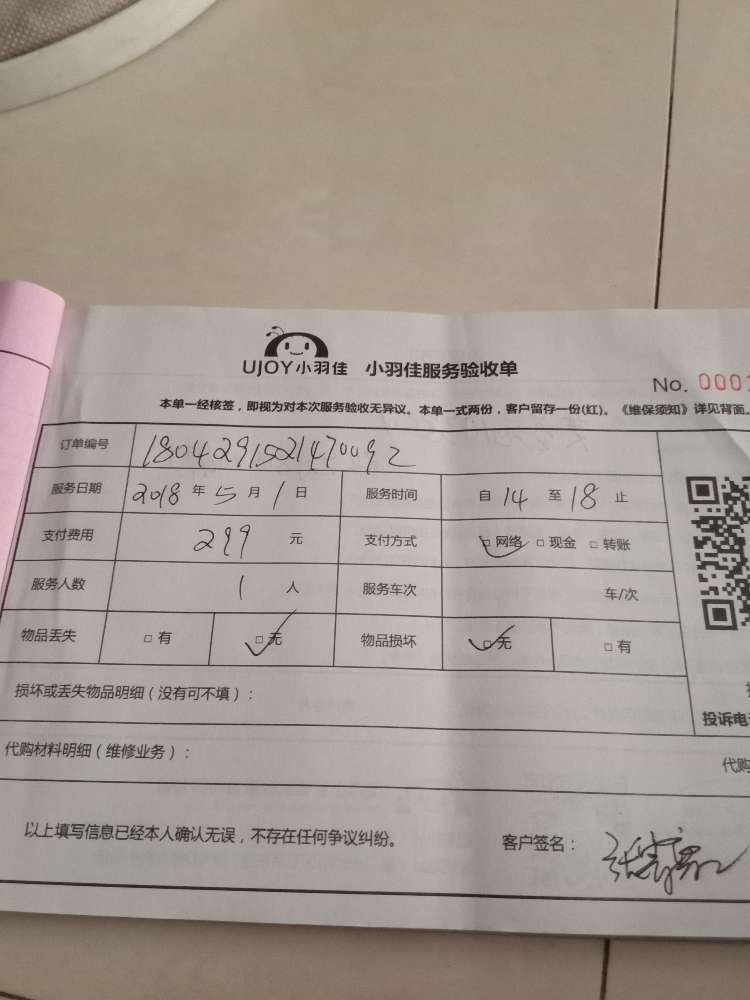 UJOY小羽佳 小羽佳服务验收单
No. 0001
本单一经核签，即视为对本次服务验收无异议。本单一式两份，客户留存一份(红)。《维保须知》详见背面。
订单编号 1804291521470092
服务日期 2018 年 5 月 1 日 服务时间 自 14 至 18 止
支付费用 299 元 支付方式 □ 网络 □ 现金 □ 转账
服务人数 1 人 服务车次 车/次
物品丢失 □ 有 □ 无 物品损坏 □ 无 □ 有
损坏或丢失物品明细（没有可不填）：
投诉电
代购材料明细（维修业务）： 代购
以上填写信息已经本人确认无误，不存在任何争议纠纷。 客户签名：